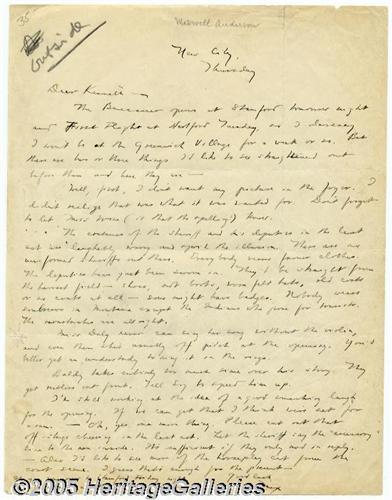 35
outside
Maxwell Anderson
New City,
Thursday
Dear Kenneth—
The Buccaneer opens at Stamford tomorrow night
and First Flight at Hartford Tuesday, so I
I won't be at the Greenwich Village for a week or so. But
there are two or three things I'd like to see straightened out
before then and here they are—
Well, first, I don't want my picture in the foyer. I
didn't realize that was what it was wanted for. Don't forget
to let Miss (is that the spelling?) know.
The costumes of the sheriff and his deputies in the last
act are laughable, wrong and spoil the illusion. There are no
uniformed sheriffs out there. Everybody wears farmer clothes.
The deputies have just been sworn in. They'd be straight from
the harvest field—shoes, not boots, worn felt hats, old coats
or no coats at all— some might have badges. Nobody wears
sombreros in Montana except the Indians who pose for tourists.
The are all right.
Miss Daly never can sing her song without the violin,
and even then she's usually off pitch at the opening. You'd
better get an understudy to sing it in the wings.
takes entirely too much time over his story. They
get restless out front. Tell to speed him up.
I'm still working at the idea of a good laugh
for the opening. If we can get that I think we're set for
a run. — Oh, yes, one more thing. Please cut out that
off-stage cheering in the last act. Let the sheriff say the
to the men inside. The is the only one in reply.
Also I'd like to see more of the horseplay cut from the
court scene. I guess that's enough for the present—
©2005 HeritageGalleries